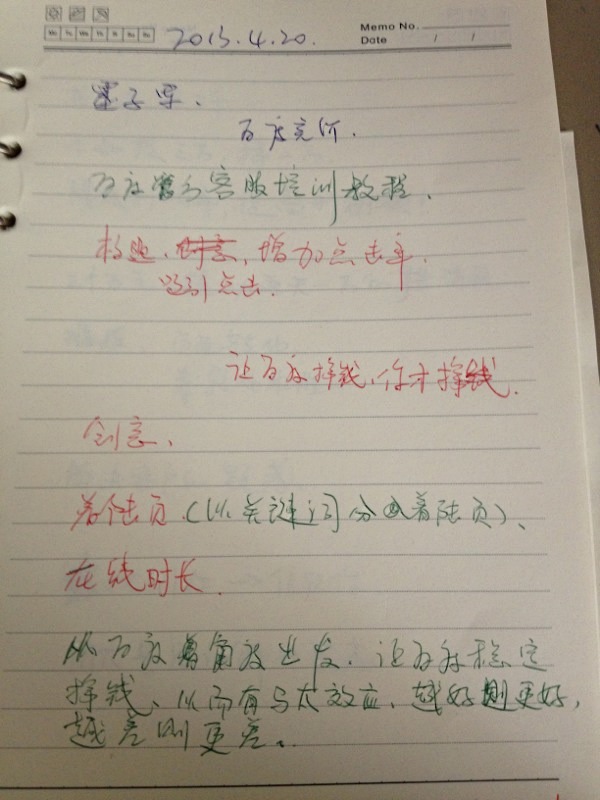 Memo No.
Date / /
Mo Tu We Th Fr Sa Su
2015.4.20.
百度竞价.
百度营销客服培训教程.
创意, 增加点击率.
吸引点击.
让百度挣钱、你才挣钱.
创意、
着陆页(从关键词分 着陆页)、
在线时长.
从百度 角度出发. 让百度稳定
挣钱、从而有马太效应. 越好则更好,
越差则更差.